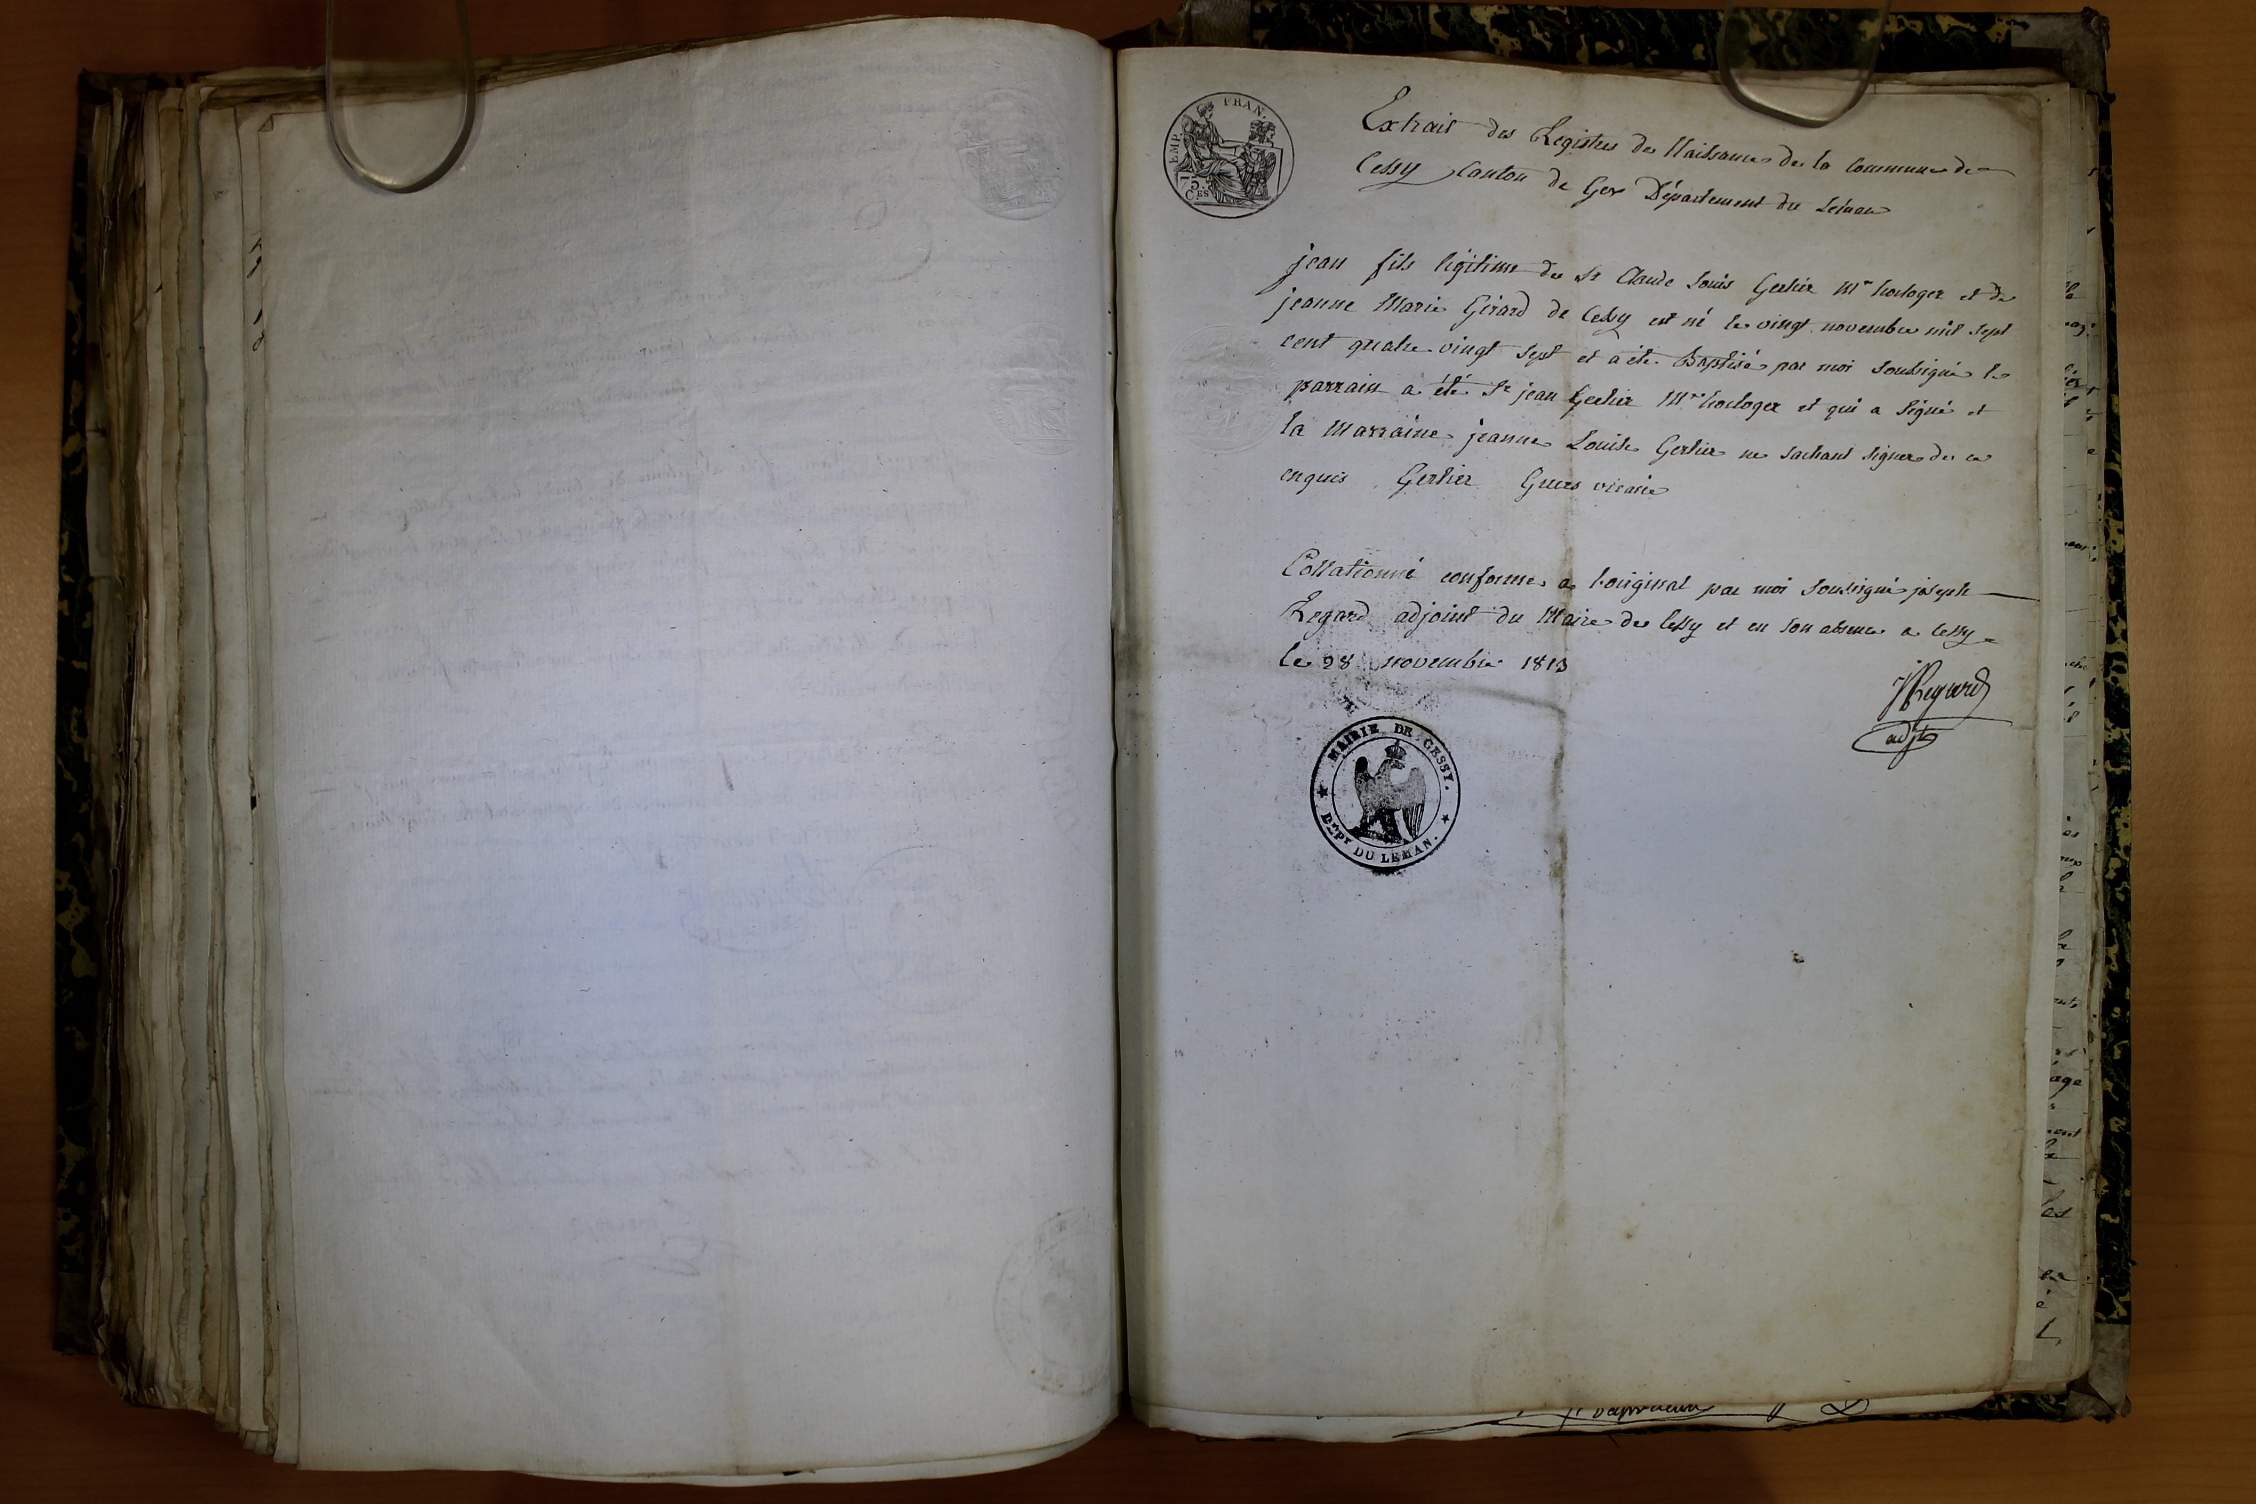 EMP. FRAN.
75
CES
Extrait des Registres de Naissances de la Commune de
Cessy Canton de Gex Département du Léman
jean fils légitime de Sr Claude Louis Gerlier Mre horloger et de
jeanne Marie Girard de Cessy est né le vingt novembre mil sept
cent quatre vingt sept et a été Baptisé par moi soussigné le
parrain a été Sr jean Gerlier Mre horloger et qui a signé et
la Marraine jeanne Louise Gerlier ne sachant signer de ce
enquis Gerlier vicaire
Collationné conforme a l'original par moi soussigné joseph
Regard adjoint du Maire de Cessy et en son absence a Cessy
le 28 novembre 1813
JRegard
adjt
MAIRIE DE CESSY.
DÉPT DU LÉMAN.